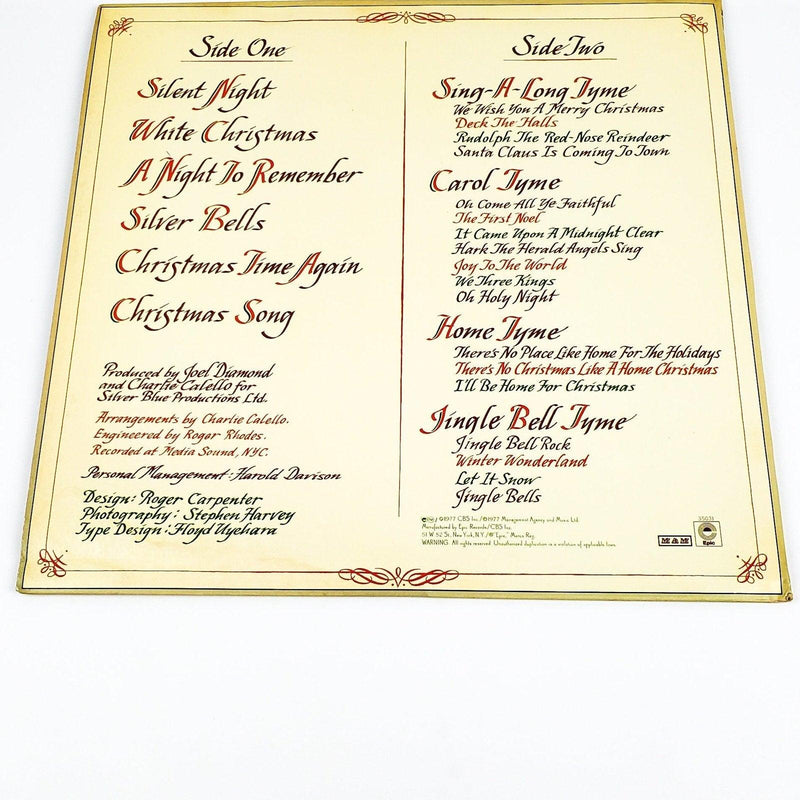 Side One
Silent Night
White Christmas
A Night To Remember
Silver Bells
Christmas Time Again
Christmas Song
Produced by Joel Diamond
and Charlie Calello for
Silver Blue Productions Ltd.
Arrangements by Charlie Calello.
Engineered by Roger Rhodes.
Recorded at Media Sound, NYC.
Personal Management: Harold Davison
Design: Roger Carpenter
Photography: Stephen Harvey
Type Design: Floyd Uyehara
Side Two
Sing-A-Long Tyme
We Wish You A Merry Christmas
Deck The Halls
Rudolph The Red-Nose Reindeer
Santa Claus Is Coming To Town
Carol Tyme
Oh Come All Ye Faithful
The First Noel
It Came Upon A Midnight Clear
Hark The Herald Angels Sing
Joy To The World
We Three Kings
Oh Holy Night
Home Tyme
There's No Place Like Home For The Holidays
There's No Christmas Like A Home Christmas
I'll Be Home For Christmas
Jingle Bell Tyme
Jingle Bell Rock
Winter Wonderland
Let It Snow
Jingle Bells
©1977 CBS Inc./℗1977 Management Agency and Music Ltd.
Manufactured by Epic Records/CBS Inc.
51 W. 52 St., New York, N.Y./® "Epic," Marca Reg.
WARNING: All rights reserved. Unauthorized duplication is a violation of applicable laws.
MAM
35031
Epic